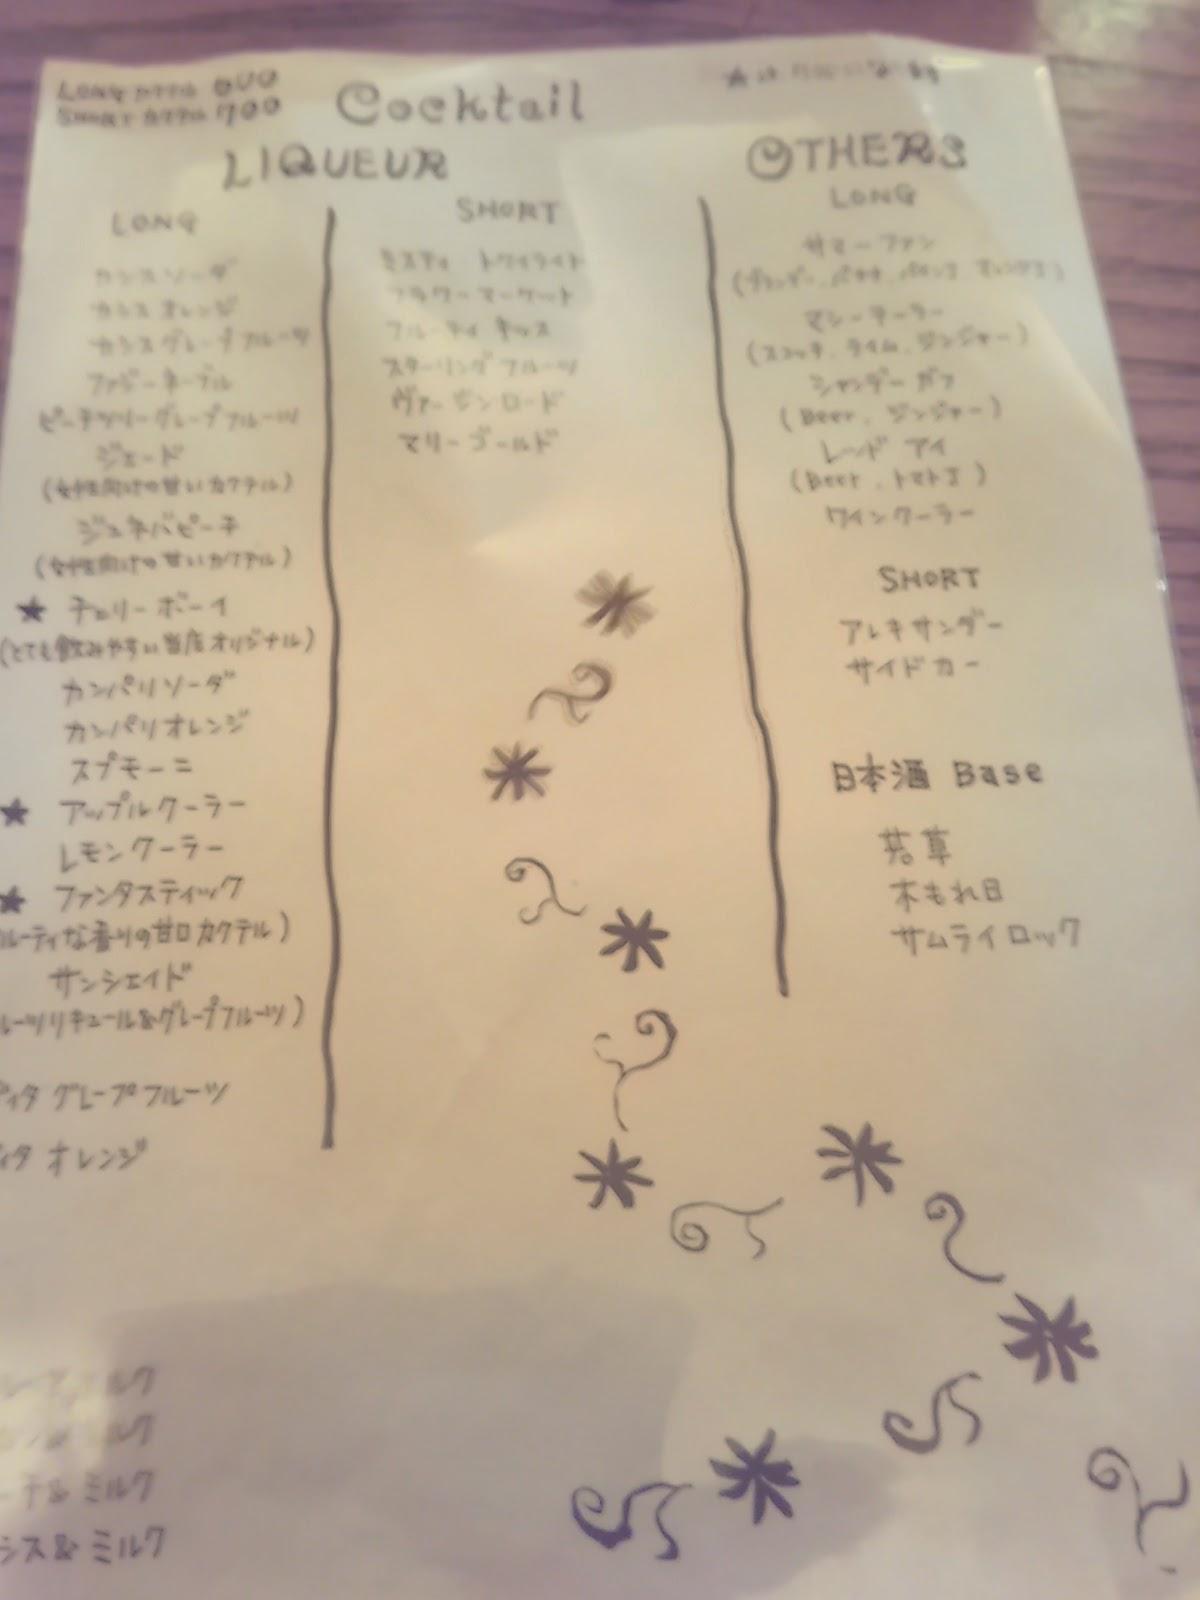 LONG カクテル 600
SHORT カクテル 700
Cocktail
★は
LIQUEUR
LONG
カシスソーダ
カシスオレンジ
カシスグレープフルーツ
ファジーネーブル
ピーチツリーグレープフルーツ
ジェード
(女性向けの甘いカクテル)
ジュネバピーチ
(女性向けの甘いカクテル)
★ チェリーボーイ
(とても飲みやすい当店オリジナル)
カンパリソーダ
カンパリオレンジ
スプモーニ
★ アップルクーラー
レモンクーラー
★ ファンタスティック
ルーティな香りの甘口カクテル)
サンシェイド
ルーツリキュール&グレープフルーツ)
ディタ グレープフルーツ
ィタ オレンジ
ミルク
ミルク
ーチ& ミルク
シス& ミルク
SHORT
ミスティ トワイライト
フラワーマーケット
フルーティ キッス
スターリングフルーツ
ヴァージンロード
マリーゴールド
OTHERS
LONG
サマーファン
(ブランデー、バナナ、パインJ オレンジJ)
マミーテーラー
(スコッチ、ライム、ジンジャー)
シャンデーガフ
(Beer、ジンジャー)
レッド アイ
(Beer、トマトJ)
ワインクーラー
SHORT
アレキサンダー
サイドカー
日本酒 Base
若草
木もれ日
サムライロック